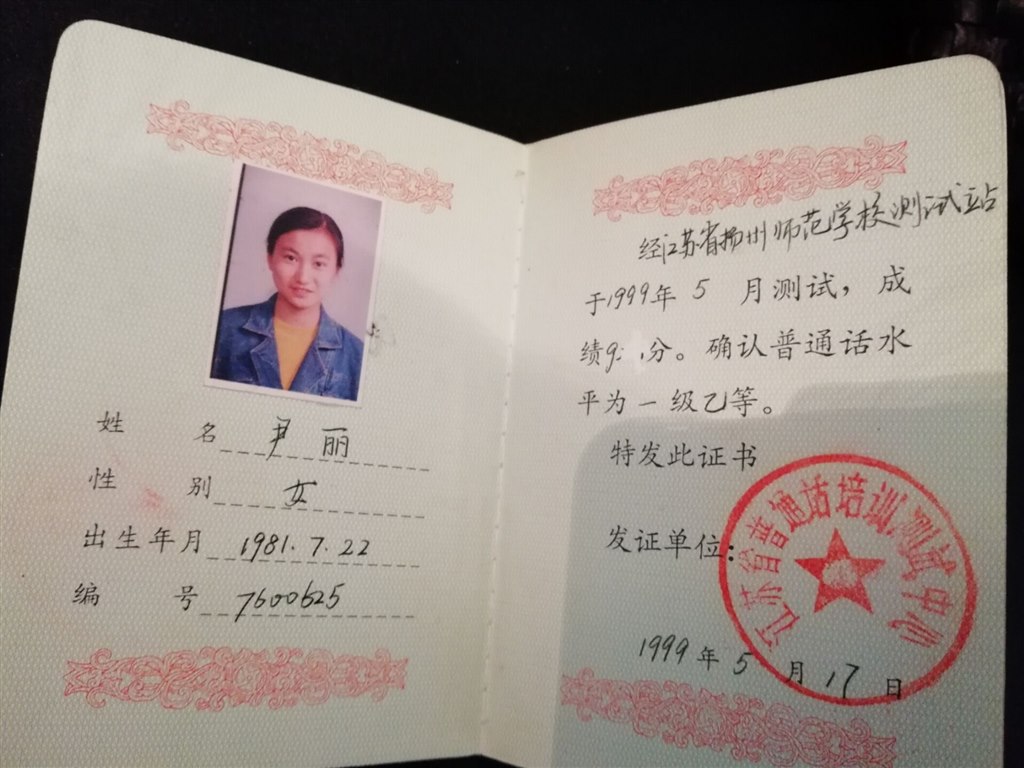 姓 名 尹丽
性 别 女
出生年月 1981.7.22
编 号 7600625
经江苏省扬州师范学校测试站
于1999年 5 月测试，成
绩 分。确认普通话水
平为一级乙等。
特发此证书
发证单位：
江苏省普通话培训测试中心
1999年5月17日